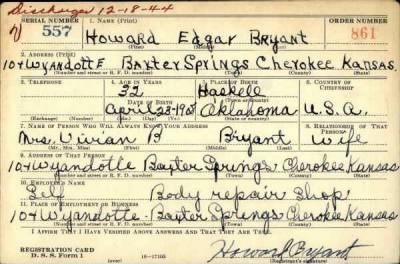 Discharge 12-18-44
SERIAL NUMBER 1. Name (Print) ORDER NUMBER
557 Howard Edgar Bryant 861
(First) (Middle) (Last)
2. Address (Print)
10th Wyandotte Baxter Springs Cherokee Kansas.
(Number and street or R. F. D. number) (Town) (County) (State)
3. Telephone 4. Age in Years 5. Place of Birth 6. Country of Citizenship
32 Haskell
Date of Birth (Town or county)
April 23-1908 Oklahoma U.S.A.
(Exchange) (Number) (Mo.) (Day) (Yr.) (State or country)
7. Name of Person Who Will Always Know Your Address 8. Relationship of That Person
Mrs. Vivian B Bryant Wife
(Mr., Mrs., Miss) (First) (Middle) (Last)
9. Address of That Person
10th Wyandotte Baxter Springs Cherokee Kansas
(Number and street or R. F. D. number) (Town) (County) (State)
10. Employer's Name
Self Body repair Shop
11. Place of Employment or Business
10th Wyandotte - Baxter Springs Cherokee Kansas
(Number and street or R. F. D. number) (Town) (County) (State)
I Affirm That I Have Verified Above Answers and That They Are True.
REGISTRATION CARD
D. S. S. Form 1 (over) 16-17105 Howard Bryant
(Registrant's signature)